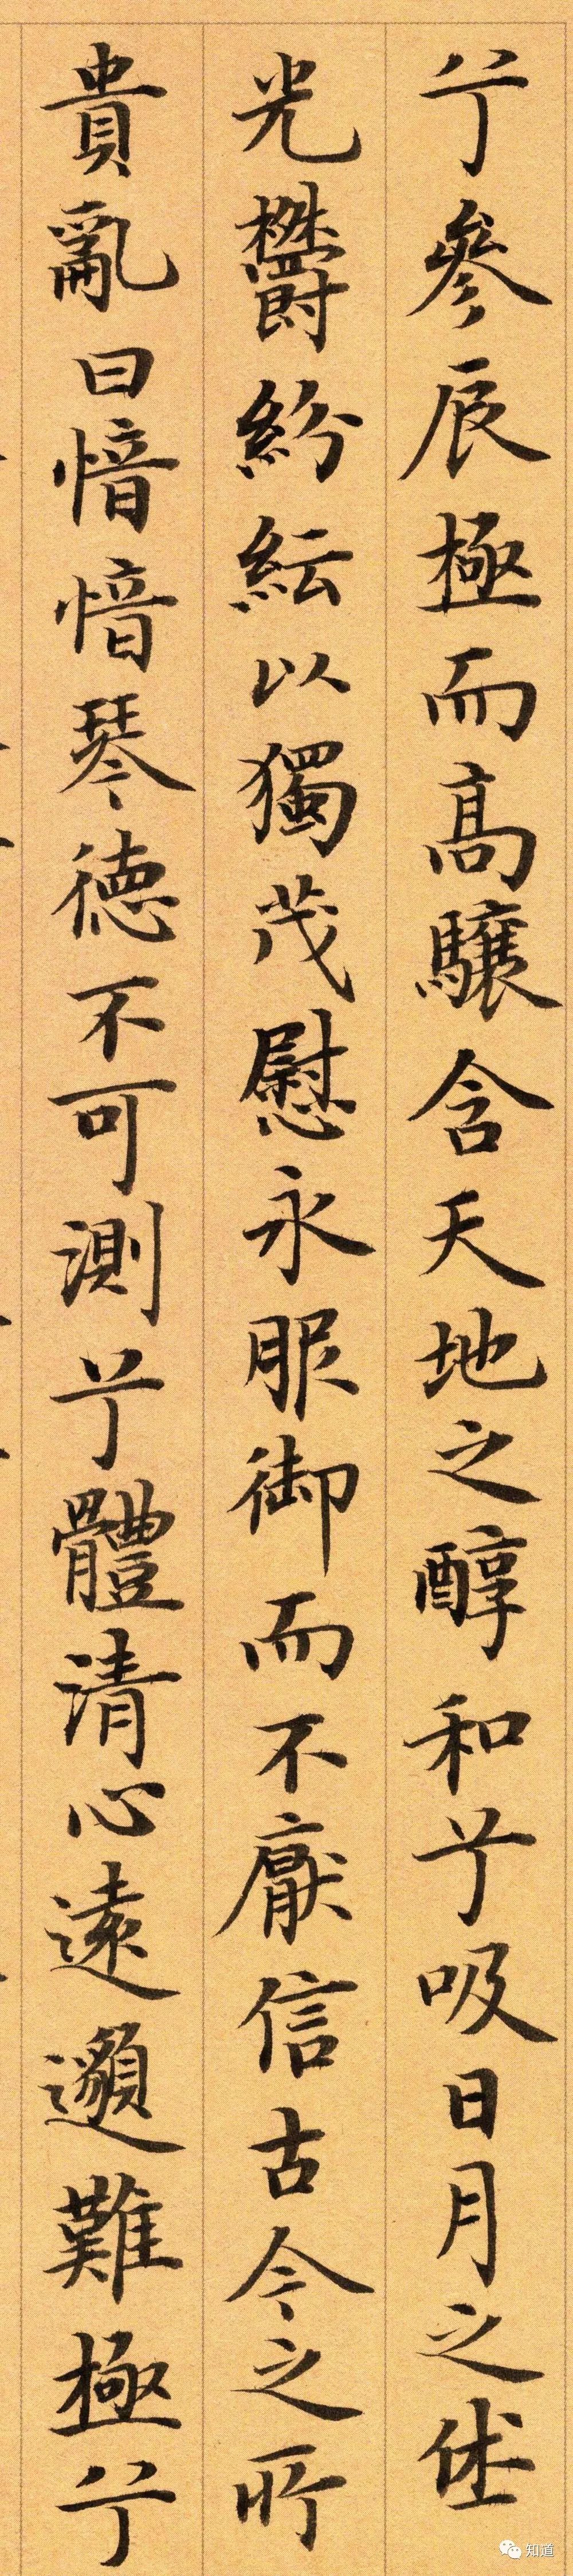 兮參辰極而高驤含天地之醇和兮吸日月之休
光鬱紛紜以獨茂慰永服御而不厭信古今之所
貴亂曰愔愔琴德不可測兮體清心遠邈難極兮
知道